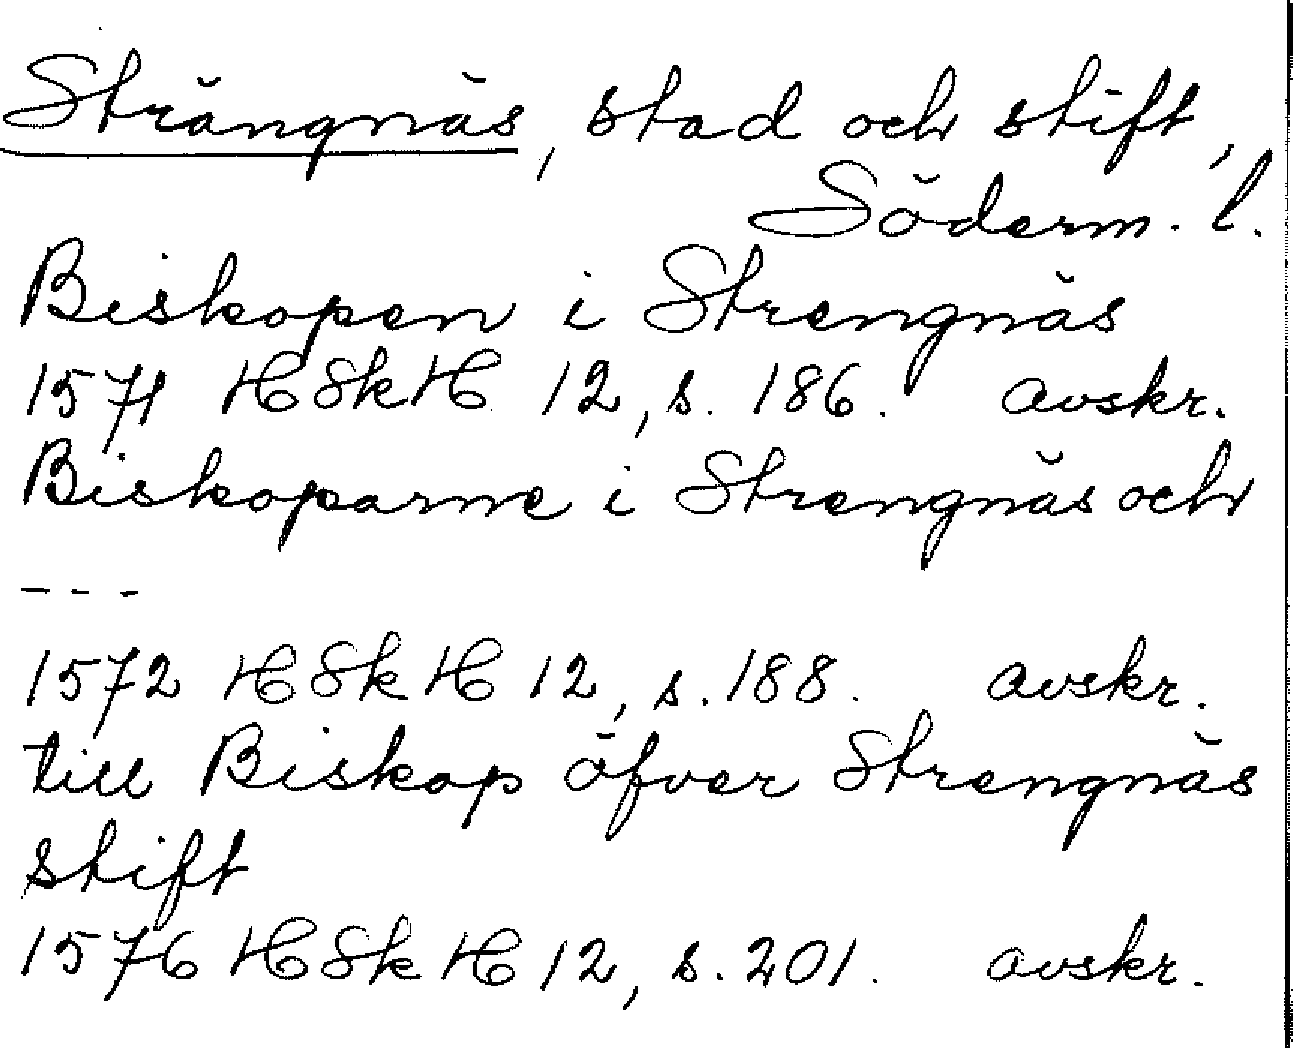 Strängnäs, stad och stift,
Söderm. l.
Biskopen i Strengnäs
1571 HSkH 12, s. 186. avskr.
Biskoparne i Strengnäs och
---
1572 HSkH 12, s. 188. avskr.
till Biskop öfver Strengnäs
stift
1576 HSkH 12, s. 201. avskr.